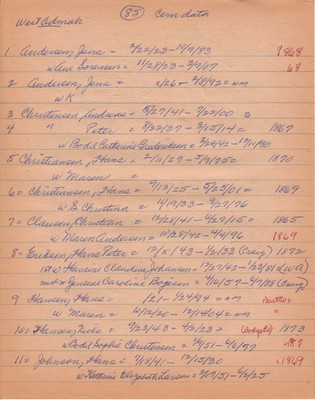 West Admah (85) Cem data
1 Andersen, Jens = 2/22/23 - 14/9/83 1868
w Ane Sorensen = 11/28/23 - 3/4/67 68
2 Andersen, Jens = c/26 - 2/18/92 = nm
w K
3 Christensen, Andreas = 5/27/41 - 7/23/00
4 " Peter = 8/22/37 - 3/15/14 = 1867
w Bodel Catherine - 3/24/42 - 12/11/90
5 Christiansen, Hans = 2/10/27 - 5/9/95 = 1870
w Maren =
6 = Christiansen, Hans = 9/13/25 - 5/25/01 = 1869
w E Christina = 10/19/33 - 4/27/76
7 = Clausen, Christian = 12/28/41 - 6/27/15 = 1865
w Maren Andersen = 10/28/42 - 4/4/96 1869
8 = Ericksen, Hans Peter = 12/x/43 - 1/2/33 (Craig) 1872
1st w Hansine Claudina Johansen = 12/27/42 - 1/23/81
md x Jensine Caroline = 9/16/57 - 4/7/88 (Craig)
9 Hansen, Hans = /21 - 1/24/94 = nm
w Maren = 6/12/20 - 12/14/04 = nm "
10 = Hansen, Niels = 9/22/43 - 4/2/23 = 1873
w Bodel Sophie Christensen = 1/4/51 - 4/6/77
11 = Johnson, Hans = 7/18/41 - 12/15/30 = 1869
w Katherine Elizabeth Larsen = 2/17/51 - 6/2/25